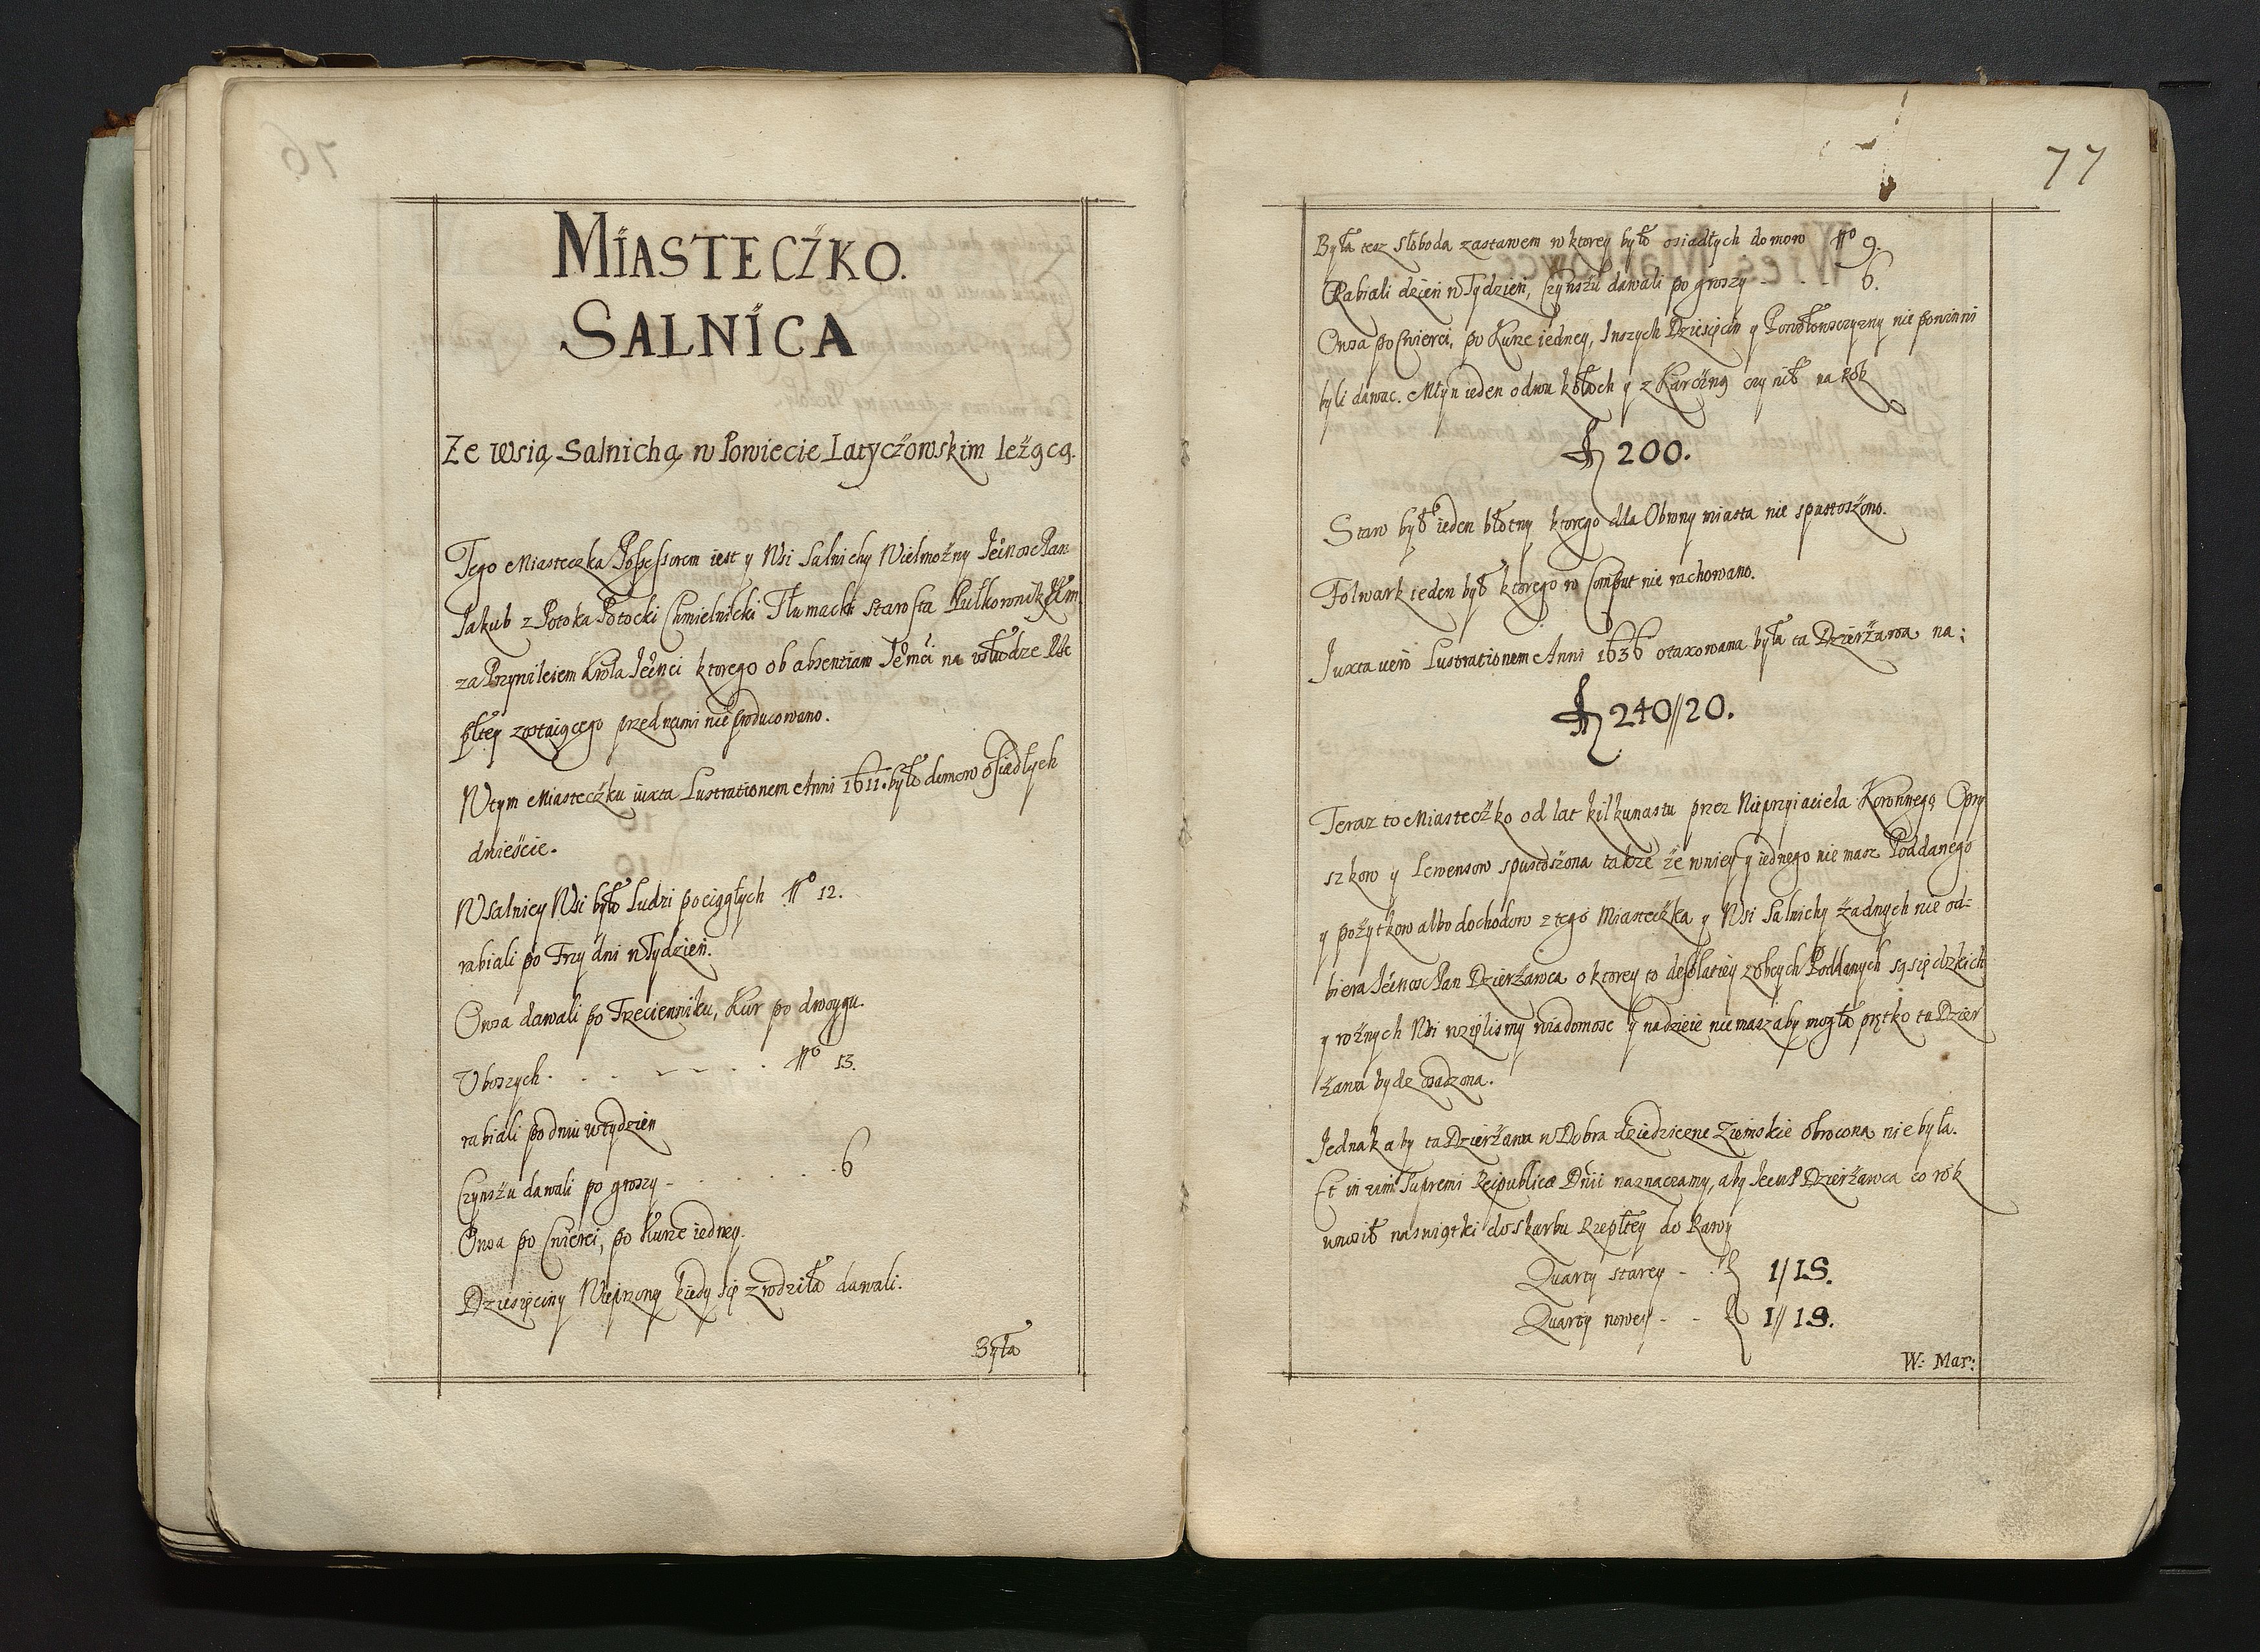 MIASTECŻKO.
SALNICA
Ze wsią Salnichą w Powiecie Latyczowskim leżącą.
Tego Miasteczka Possessorem iest y Wsi Salnichy Wielmożny Jeo
Jakub z Potoka Potocki Chmielnicki Tłumacki Starosta Pułkownik JKM
za Przywileiem Krola ktorego ob absentiam na usłudze
zostaiącego przed nami nie producowano.
W tym Miasteczku iuxta Lustrationem Anni 1611. było domow osiadłych
W salniey Wsi było Ludzi pociągłych No 12.
rabiali po Trzy dni w Tydzien.
Owsa dawali po Trecienniku, Kur po dwoygu.
Uboszych . . . . . . No 13.
rabiali po dniu w tydzien
Czynszu dawali po groszy - . . . . 6
Owsa po Cwierci, po Kurze iedney.
Dziesięciny Wieprzowy kiedy się zrodziła dawali.
Była
77
Była tesz Słoboda zastawem w ktorey było osiadłych domow No 9.
Rabiali dzień w Tydzień, Czynszu dawali po groszy - - - 6.
Owsa po Cwierci, po Kurze iedney, Inszych Dziesięcin y Powołowsczyzny nie powinni
byli dawac. Młyn ieden o dwu kołoch y z Karczmą czynił na Rok
fl 200.
Staw był ieden błotny ktorego dla Obrony miasta nie spustoszono.
Folwark ieden był ktorego w Comput nie rachowano.
Juxta vero Lustrationem Anni 1636 otaxowana była ta Dzierżawa na:
fl 240//20.
Teraz to Miasteczko od lat kilkunastu przez Nieprzyiaciela Koronnego Opry
szkow y Lewensow spustoszona takze że w niey y iednego nie masz Poddanego
y pożytkow albo dochodow z tego Miasteczka y Wsi Salnichy żadnych nie od-
biera Pan Dzierżawca o ktorey to desolatiey z obcych Poddanych sąsiędzkich
y rożnych Wsi wzięlismy wiadomosc y nadzieie nie masz aby mogła prętko ta Dzier
żawa bydz osadzona.
Jednak aby ta Dzierżawa w Dobra dziedziczne Ziemskie obrocona nie była.
Et in vim Supremi Reipublicæ Dnii naznaczamy, aby Dzierżawca co rok
wnosił na swiątki do skarbu Rzepltey do Rawy
Quarty starey - fl 1//18.
Quarty nowey - - fl 1//18.
W: Mar: